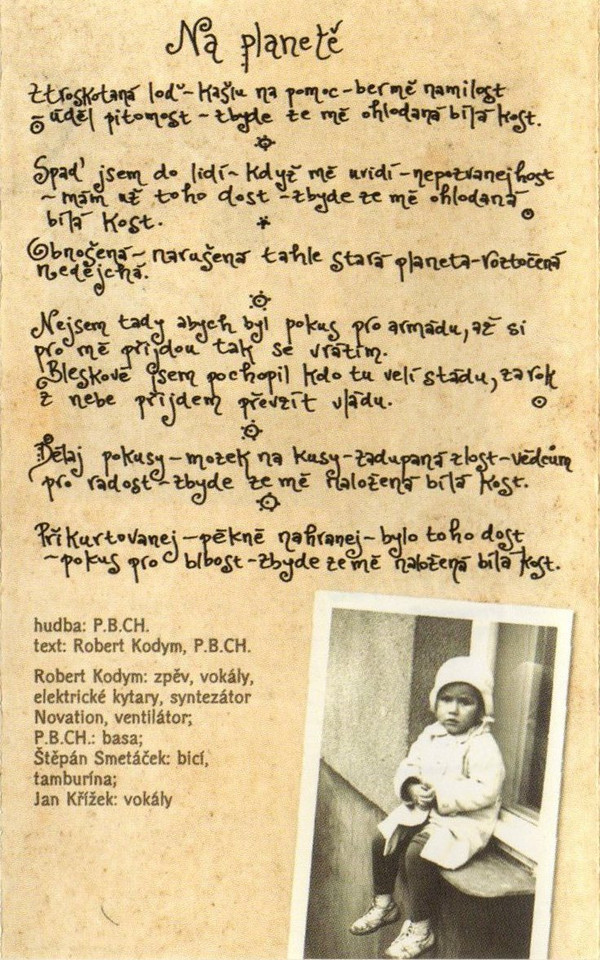 Na planetě
Ztroskotaná loď - kašlu na pomoc - bermě namilost
úděl pitomost - zbyde ze mě ohlodaná bílá kost.
Spad' jsem do lidí - Když mě uvidí - nepozvanej host
- mám už toho dost - zbyde ze mě ohlodaná
bílá kost.
Obnošená - narušená tahle stará planeta - roztočená
nedejchá.
Nejsem tady abych byl pokus pro armádu, až si
pro mě přijdou tak se vrátím.
Bleskově jsem pochopil kdo tu velí stádu, za rok
z nebe přijdem převzít vládu.
Dělaj pokusy - mozek na kusy - zadupaná zlost - vědcům
pro radost - zbyde ze mě naložená bílá kost.
Přikurtovanej - pěkně nahranej - bylo toho dost
- pokus pro blbost - zbyde ze mě naložená bílá kost.
hudba: P.B.CH.
text: Robert Kodym, P.B.CH.
Robert Kodym: zpěv, vokály,
elektrické kytary, syntezátor
Novation, ventilátor;
P.B.CH.: basa;
Štěpán Smetáček: bicí,
tamburína;
Jan Křížek: vokály